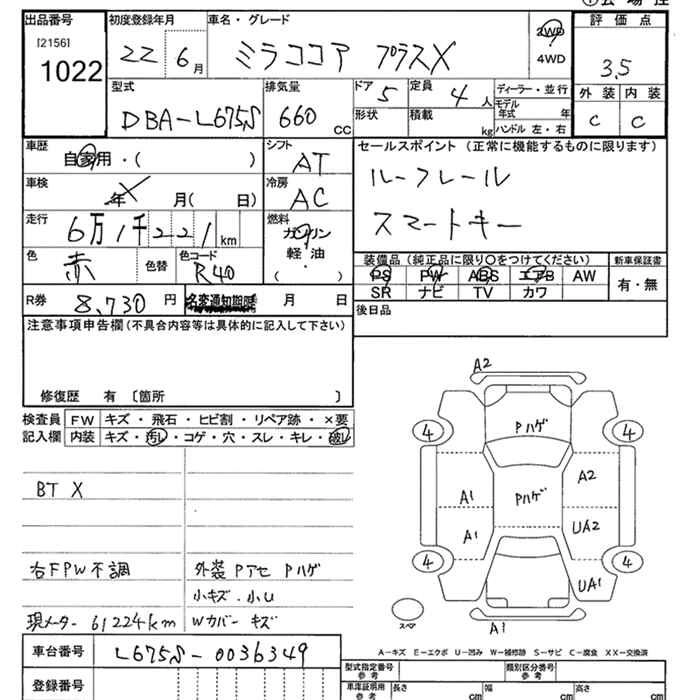 出品番号
[2156]
1022
初度登録年月
22 6月
車名・グレード
ミラココア プラスX
2WD
4WD
評価点
3.5
外装 内装
C C
型式
DBA-L675S
排気量
660 CC
ドア 5
形状
定員 4人
積載 kg
ディーラー・並行
モデル年式 年
ハンドル 左・右
車歴
自家用・( )
シフト
AT
車検
年 月( 日)
冷房
AC
走行
6万1千221km
燃料
ガソリン
軽・油
( )
色
赤
色替
色コード
R40
R券 8,730円
名変通知期限 月 日
セールスポイント (正常に機能するものに限ります)
ルーフレール
スマートキー
装備品 (純正品に限り○をつけてください)
PS PW ABS エアB AW
SR ナビ TV カワ
新車保証書
有・無
後日品
注意事項申告欄(不具合内容等は具体的に記入して下さい)
修復歴 有 〔箇所 〕
検査員記入欄
FW キズ・飛石・ヒビ割・リペア跡・×要
内装 キズ・汚レ・コゲ・穴・スレ・キレ・破レ
BT X
右FPW不調
現メーター 61224km
外装 Pアセ Pハゲ
小キズ・小U
Wカバー キズ
A2
4
4
Pハゲ
A1
Pハゲ
A2
A1
UA2
4
4
UA1
スペア
A1
A-キズ E-エクボ U-凹み W-補修跡 S-サビ C-腐食 XX-交換済
車台番号 L675S-0036349
登録番号
型式指定番号
参考
類別区分番号
参考
車庫証明用
参考
長さ cm
幅 cm
高さ cm